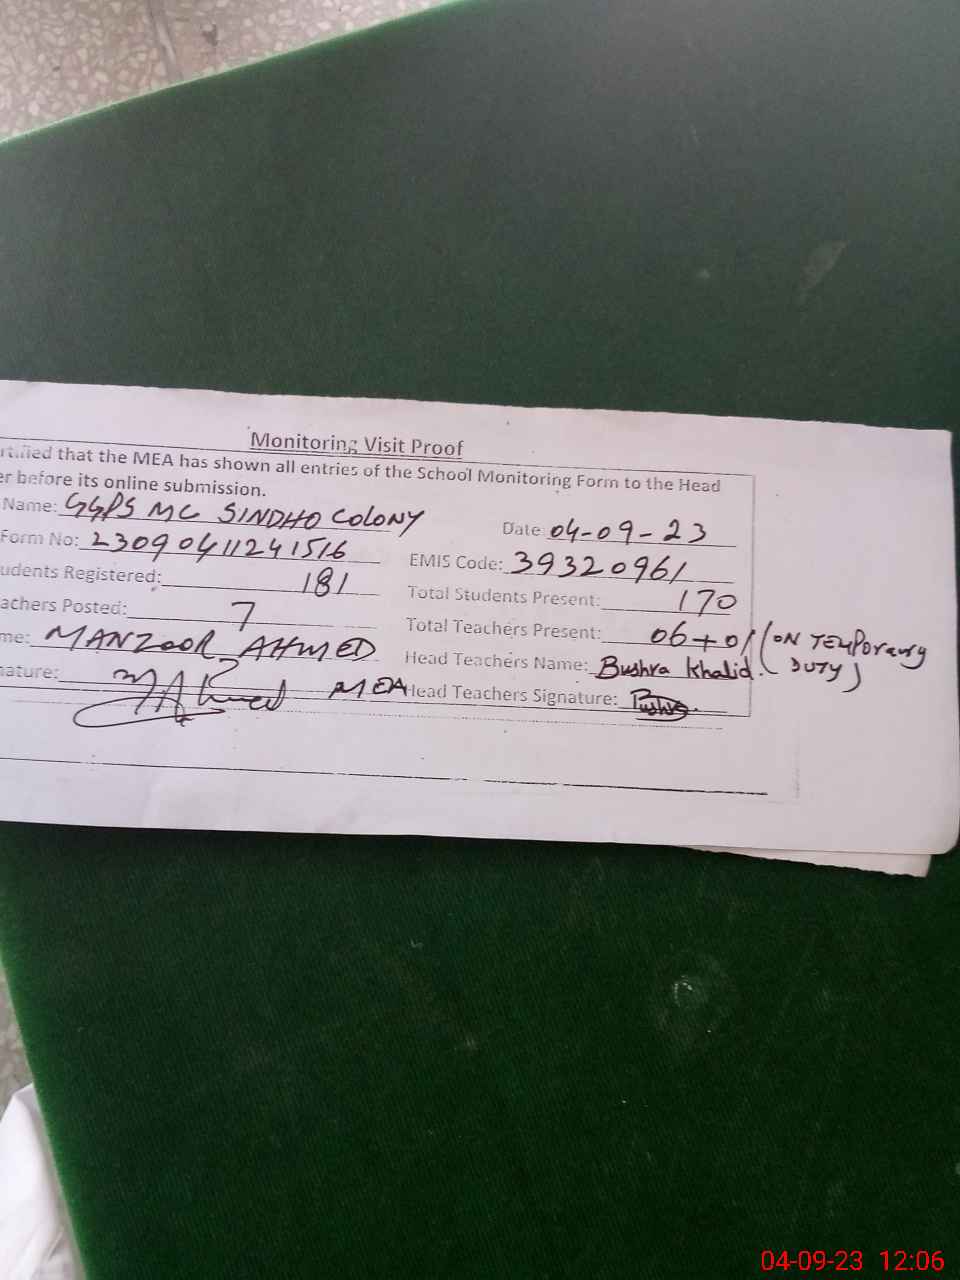 Monitoring Visit Proof
rtified that the MEA has shown all entries of the School Monitoring Form to the Head
er before its online submission.
Name: GGPS MC SINDHO COLONY Date: 04-09-23
Form No: 23090411241516 EMIS Code: 39320961
udents Registered: 181 Total Students Present: 170
achers Posted: 7 Total Teachers Present: 06+01 (ON TEMPORARY DUTY)
me: MANZOOR AHMED Head Teachers Name: Bushra Khalid.
nature: MAhmed MEA Head Teachers Signature: Bushra.
04-09-23 12:06